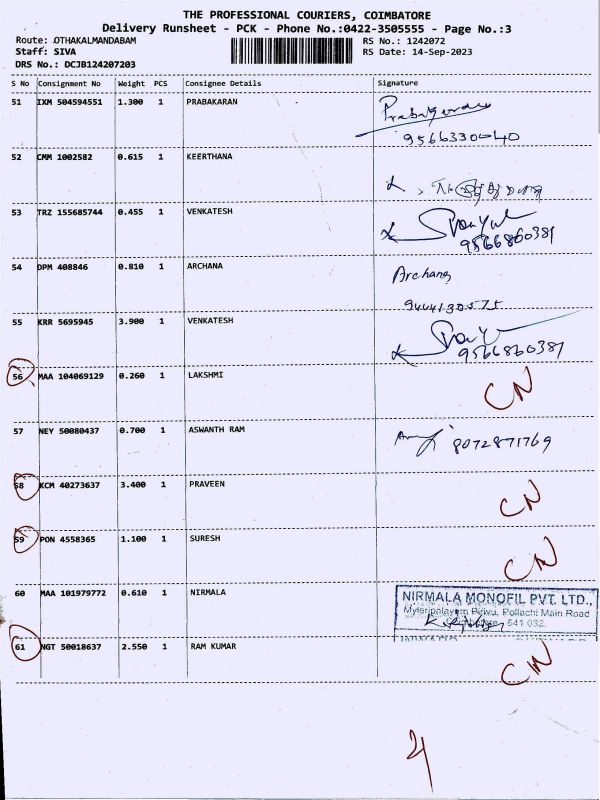 THE PROFESSIONAL COURIERS, COIMBATORE
Delivery Runsheet - PCK - Phone No.:0422-3505555 - Page No.:3
Route: OTHAKALMANDABAM RS No.: 1242072
Staff: SIVA RS Date: 14-Sep-2023
DRS No.: DCJB124207203
S No Consignment No Weight PCS Consignee Details Signature
51 IXM 504594551 1.300 1 PRABAKARAN
9566330040
52 CMM 1002582 0.615 1 KEERTHANA
53 TRZ 155685744 0.455 1 VENKATESH
9566860381
54 DPM 408846 0.810 1 ARCHANA Archana
9444130575
55 KRR 5695945 3.900 1 VENKATESH
9566860381
56 MAA 104069129 0.260 1 LAKSHMI CN
57 NEY 50080437 0.700 1 ASWANTH RAM 8072871769
58 KCM 40273637 3.400 1 PRAVEEN CN
59 PON 4558365 1.100 1 SURESH CN
60 MAA 101979772 0.610 1 NIRMALA NIRMALA MONOFIL PVT. LTD.,
Pollachi Main Road
641 032.
61 NGT 50018637 2.550 1 RAM KUMAR CN